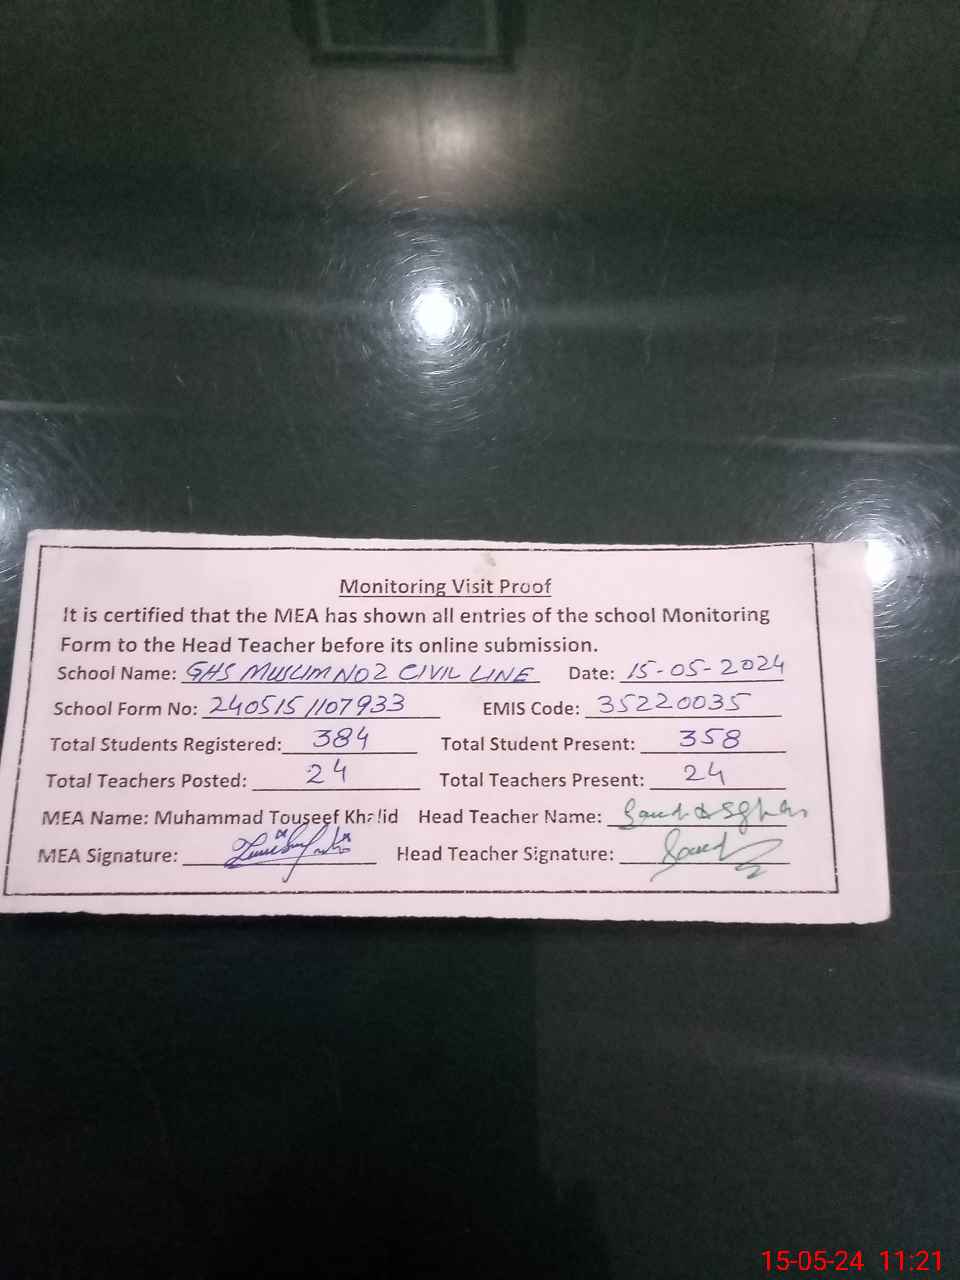 Monitoring Visit Proof
It is certified that the MEA has shown all entries of the school Monitoring
Form to the Head Teacher before its online submission.
School Name: GHS MUSLIM NO2 CIVIL LINE Date: 15-05-2024
School Form No: 2405151107933 EMIS Code: 35220035
Total Students Registered: 384 Total Student Present: 358
Total Teachers Posted: 24 Total Teachers Present: 24
MEA Name: Muhammad Touseef Khalid Head Teacher Name:
MEA Signature: Head Teacher Signature:
15-05-24 11:21